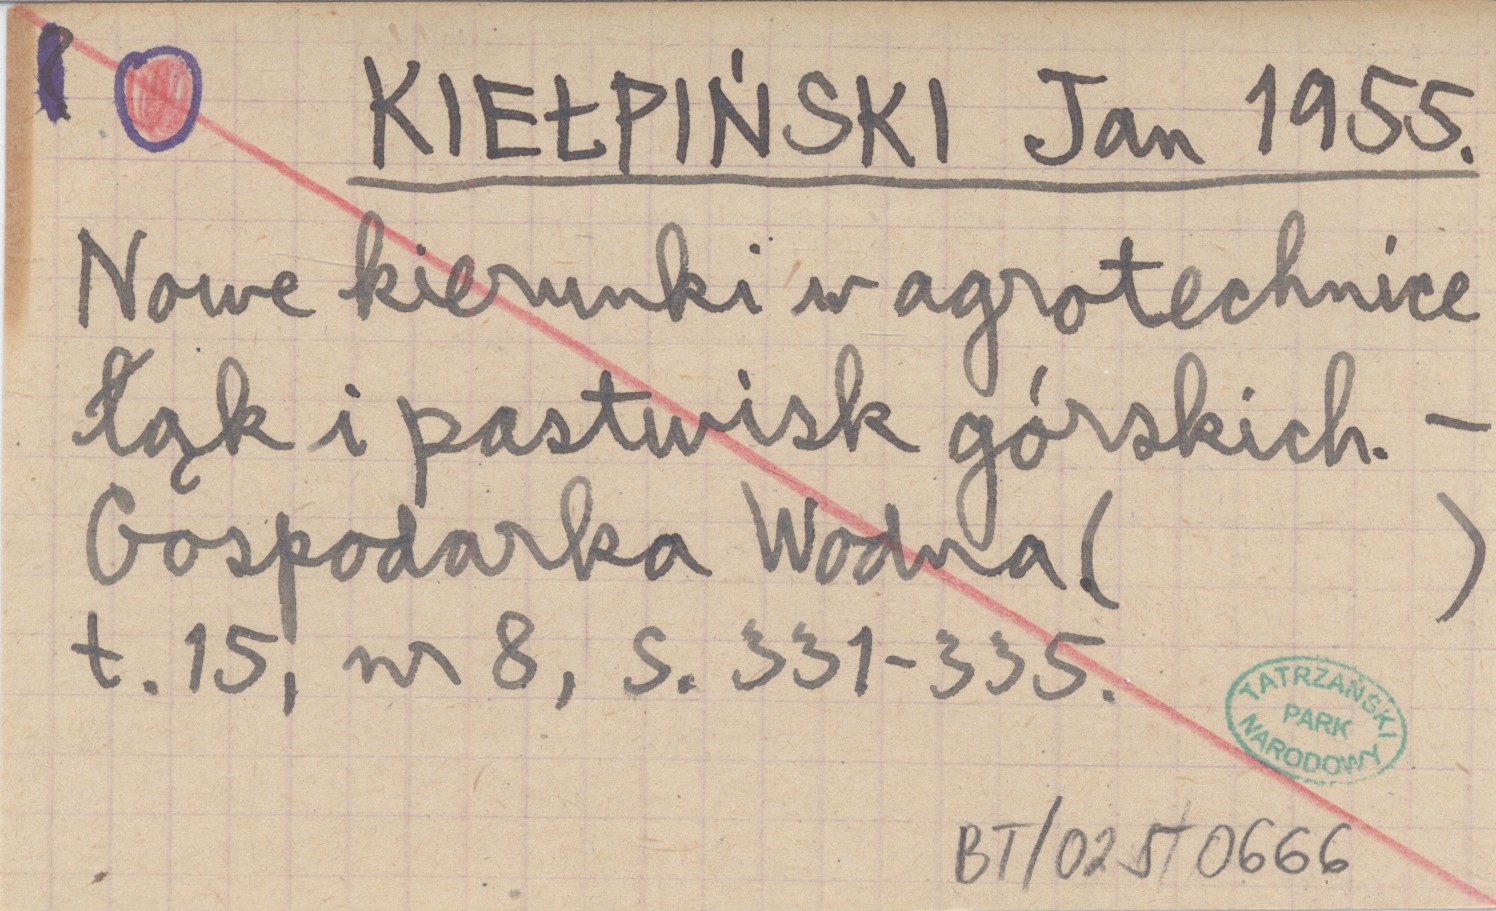 KIEŁPIŃSKI Jan 1955.
Nowe kierunki w agrotechnice
łąk i pastwisk górskich. –
Gospodarka Wodna. ( )
t. 15, nr 8, s. 331-335.
TATRZAŃSKI
PARK
NARODOWY
BT/025/0666